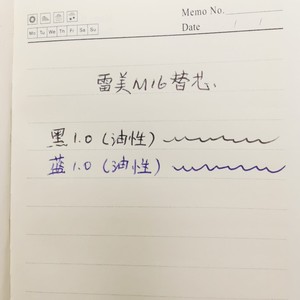 Memo No.
Date / /
Mo Tu We Th Fr Sa Su
雷美M16替芯、
黑 1.0（油性）
蓝 1.0（油性）